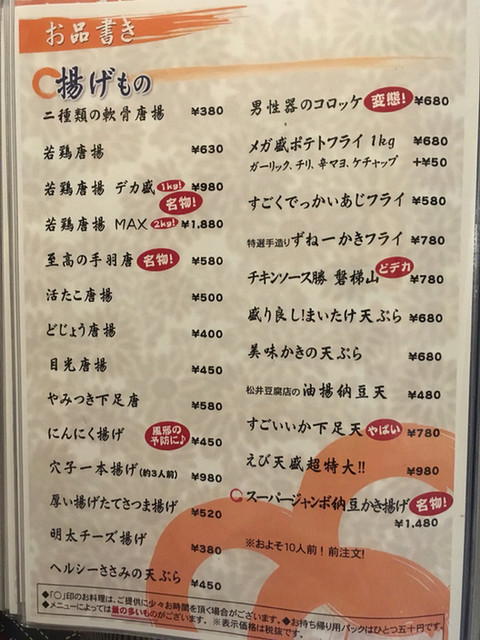 お品書き
揚げもの
二種類の軟骨唐揚 ¥380
若鶏唐揚 ¥630
若鶏唐揚 デカ盛 1kg! ¥980
名物!
若鶏唐揚 MAX 2kg! ¥1,880
至高の手羽唐 名物! ¥580
活たこ唐揚 ¥500
どじょう唐揚 ¥400
目光唐揚 ¥450
やみつき下足唐 ¥580
にんにく揚げ 風邪の予防に♪ ¥450
穴子一本揚げ(約3人前) ¥980
厚い揚げたてさつま揚げ ¥520
明太チーズ揚げ ¥380
ヘルシーささみの天ぷら ¥450
男性器のコロッケ 変態! ¥680
メガ盛ポテトフライ 1kg ¥680
ガーリック、チリ、辛マヨ、ケチャップ +¥50
すごくでっかいあじフライ ¥580
特選手造りずねーかきフライ ¥780
チキンソース勝 磐梯山 どデカ ¥780
盛り良し!まいたけ天ぷら ¥680
美味かきの天ぷら ¥680
松井豆腐店の油揚納豆天 ¥480
すごいいか下足天 やばい ¥780
えび天盛超特大!! ¥980
○スーパージャンボ納豆かき揚げ 名物!
¥1,480
※およそ10人前!前注文!
◆「○」印のお料理は、ご提供に少々お時間を頂く場合がございます。◆お持ち帰り用パックはひとつ五十円です。
◆メニューによっては量の多いものがございます。 ※表示価格は税抜です。